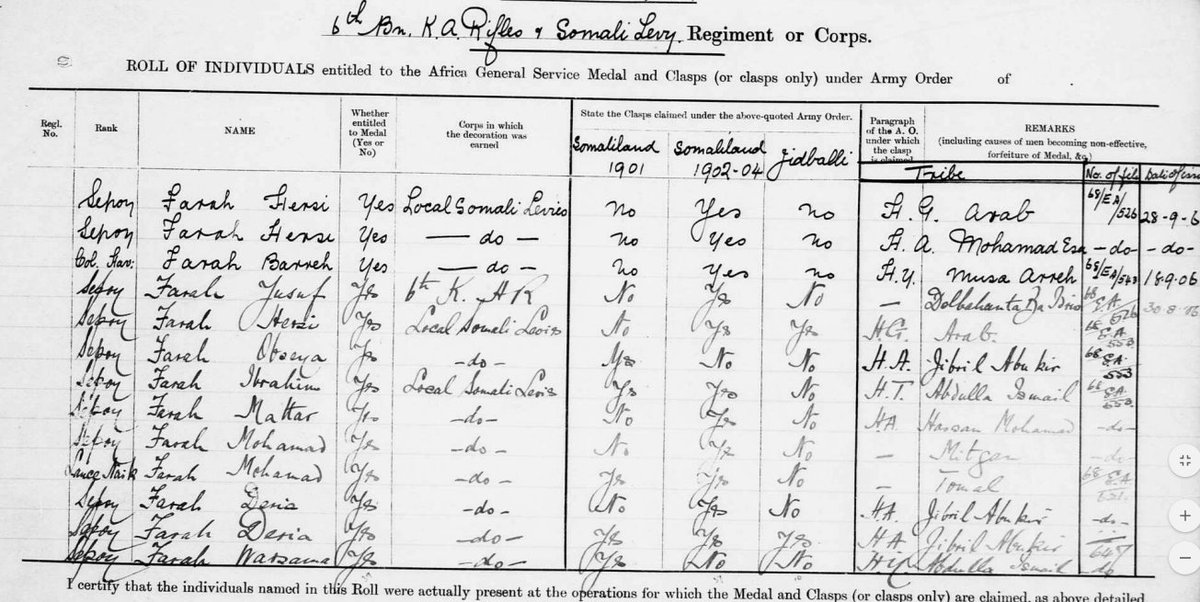 6th Bn. K.A. Rifles & Somali Levy. Regiment or Corps.
ROLL OF INDIVIDUALS entitled to the Africa General Service Medal and Clasps (or clasps only) under Army Order of
Regl. No. Rank NAME Whether entitled to Medal (Yes or No) Corps in which the decoration was earned State the Clasps claimed under the above-quoted Army Order. Paragraph of the A. O. under which the clasp is claimed REMARKS (including causes of men becoming non-effective, forfeiture of Medal, &c.)
Somaliland 1901 Somaliland 1902-04 Jidballi Tribe No. of file Date of issue
Sepoy Farah Hersi Yes Local Somali Levies No Yes no H. G. Arab 68/EA/526 28-9-6
Sepoy Farah Hersi Yes — do — no Yes no H. A. Mohamad Esa — do — — do —
Farah Barreh Yes — do — no Yes no H.Y. Musa Arreh 68/EA/543 18.9.06
Sepoy Farah Yusuf Yes 6th K. A R No Yes No — Dolbahanta 68 EA 526 30.8.
Sepoy Farah Hersi Yes Local Somali Levies No Yes Yes H.G. Arab. 68 EA 553
Sepoy Farah Obseya Yes — do — Yes No No H.A. Jibril Abukir 68 EA 553
Sepoy Farah Ibrahim Yes Local Somali Levies Yes Yes No H.T. Abdulla Ismail 68 EA 553.
Sepoy Farah Mattar Yes — do — No Yes No H.A. Hassan Mohamad — do —
Sepoy Farah Mohamad Yes — do — No Yes No — Mitgan — do —
Lance Naik Farah Mohamad Yes — do — Yes Yes No — Tomal 68 EA
Sepoy Farah Deria Yes — do — No Yes No H.A. Jibril Abukir — do —
Sepoy Farah Deria Yes — do — Yes Yes Yes H A Jibril Abukir
Sepoy Farah Warsama Yes — do — Yes No No Abdulla Ismail do
I certify that the individuals named in this Roll were actually present at the operations for which the Medal and Clasps (or clasps only) are claimed, as above detailed